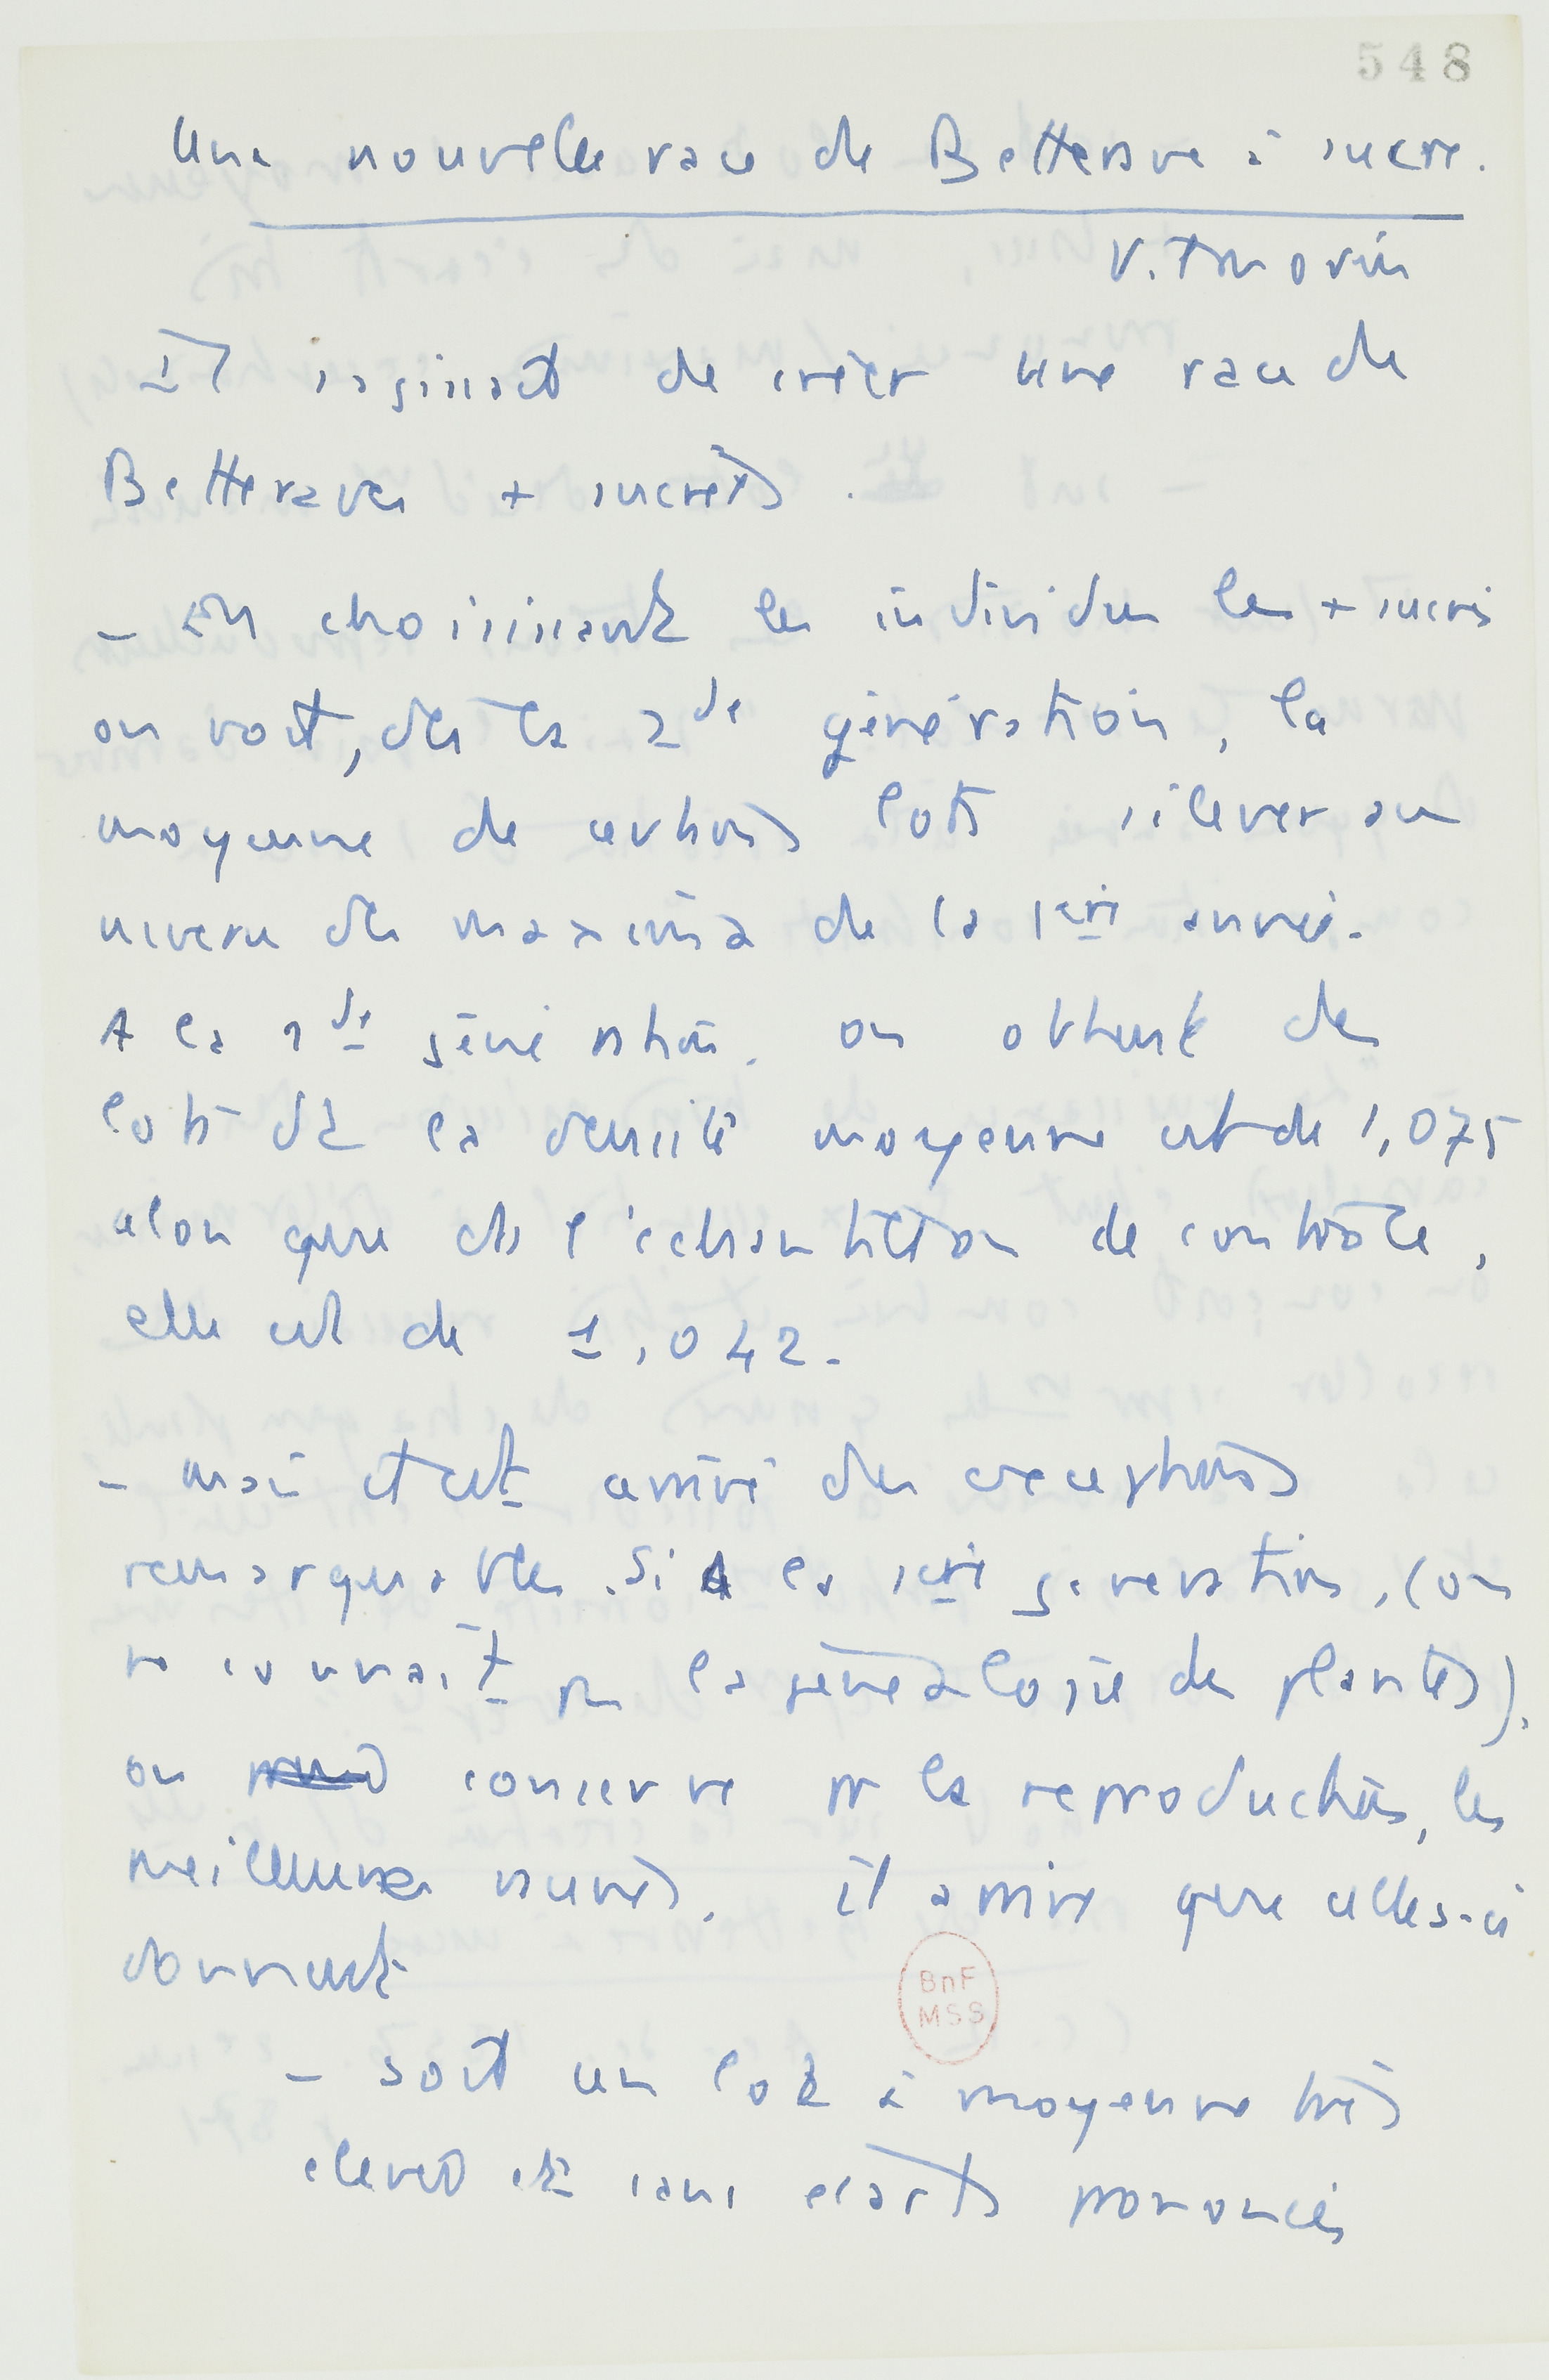 548
Une nouvelle race de Betterave à sucre.
Vilmorin
Il s'agissait de créer une race de
Betteraves + sucrées.
- En choisissant les individus les + sucrés
on voit, dès la 2de génération, la
moyenne de certains lots s'élever au
niveau des maxima de la 1ère année.
A la 2de génération, on obtient des
lots dt la densité moyenne est de 1,075
alors que ds l'échantillon de contrôle,
elle est de 1,042.
- mais il est arrivé des exceptions
remarquables. Si à la 1ère génération, (on
reconnaît la généalogie des plantes),
on conserve pr la reproduction, les
meilleures racines, il arrive que celles-ci
donnent
- soit un lot à moyenne très
élevée et sans écarts prononcés
BnF
MSS